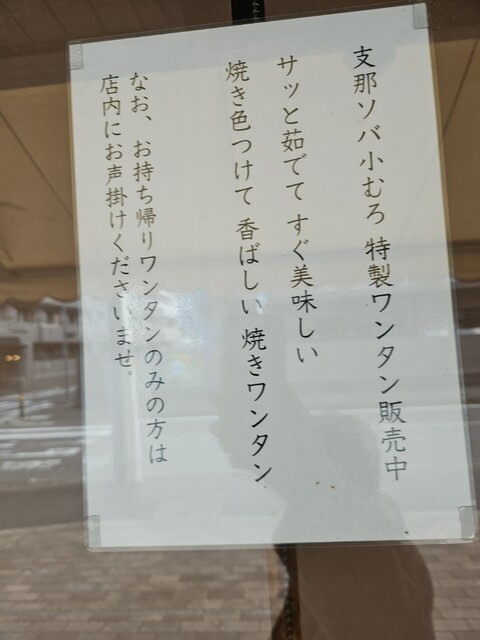 支那ソバ小むろ 特製ワンタン販売中
サッと茹でて すぐ美味しい
焼き色つけて 香ばしい 焼きワンタン
なお、お持ち帰りワンタンのみの方は
店内にお声掛けくださいませ。